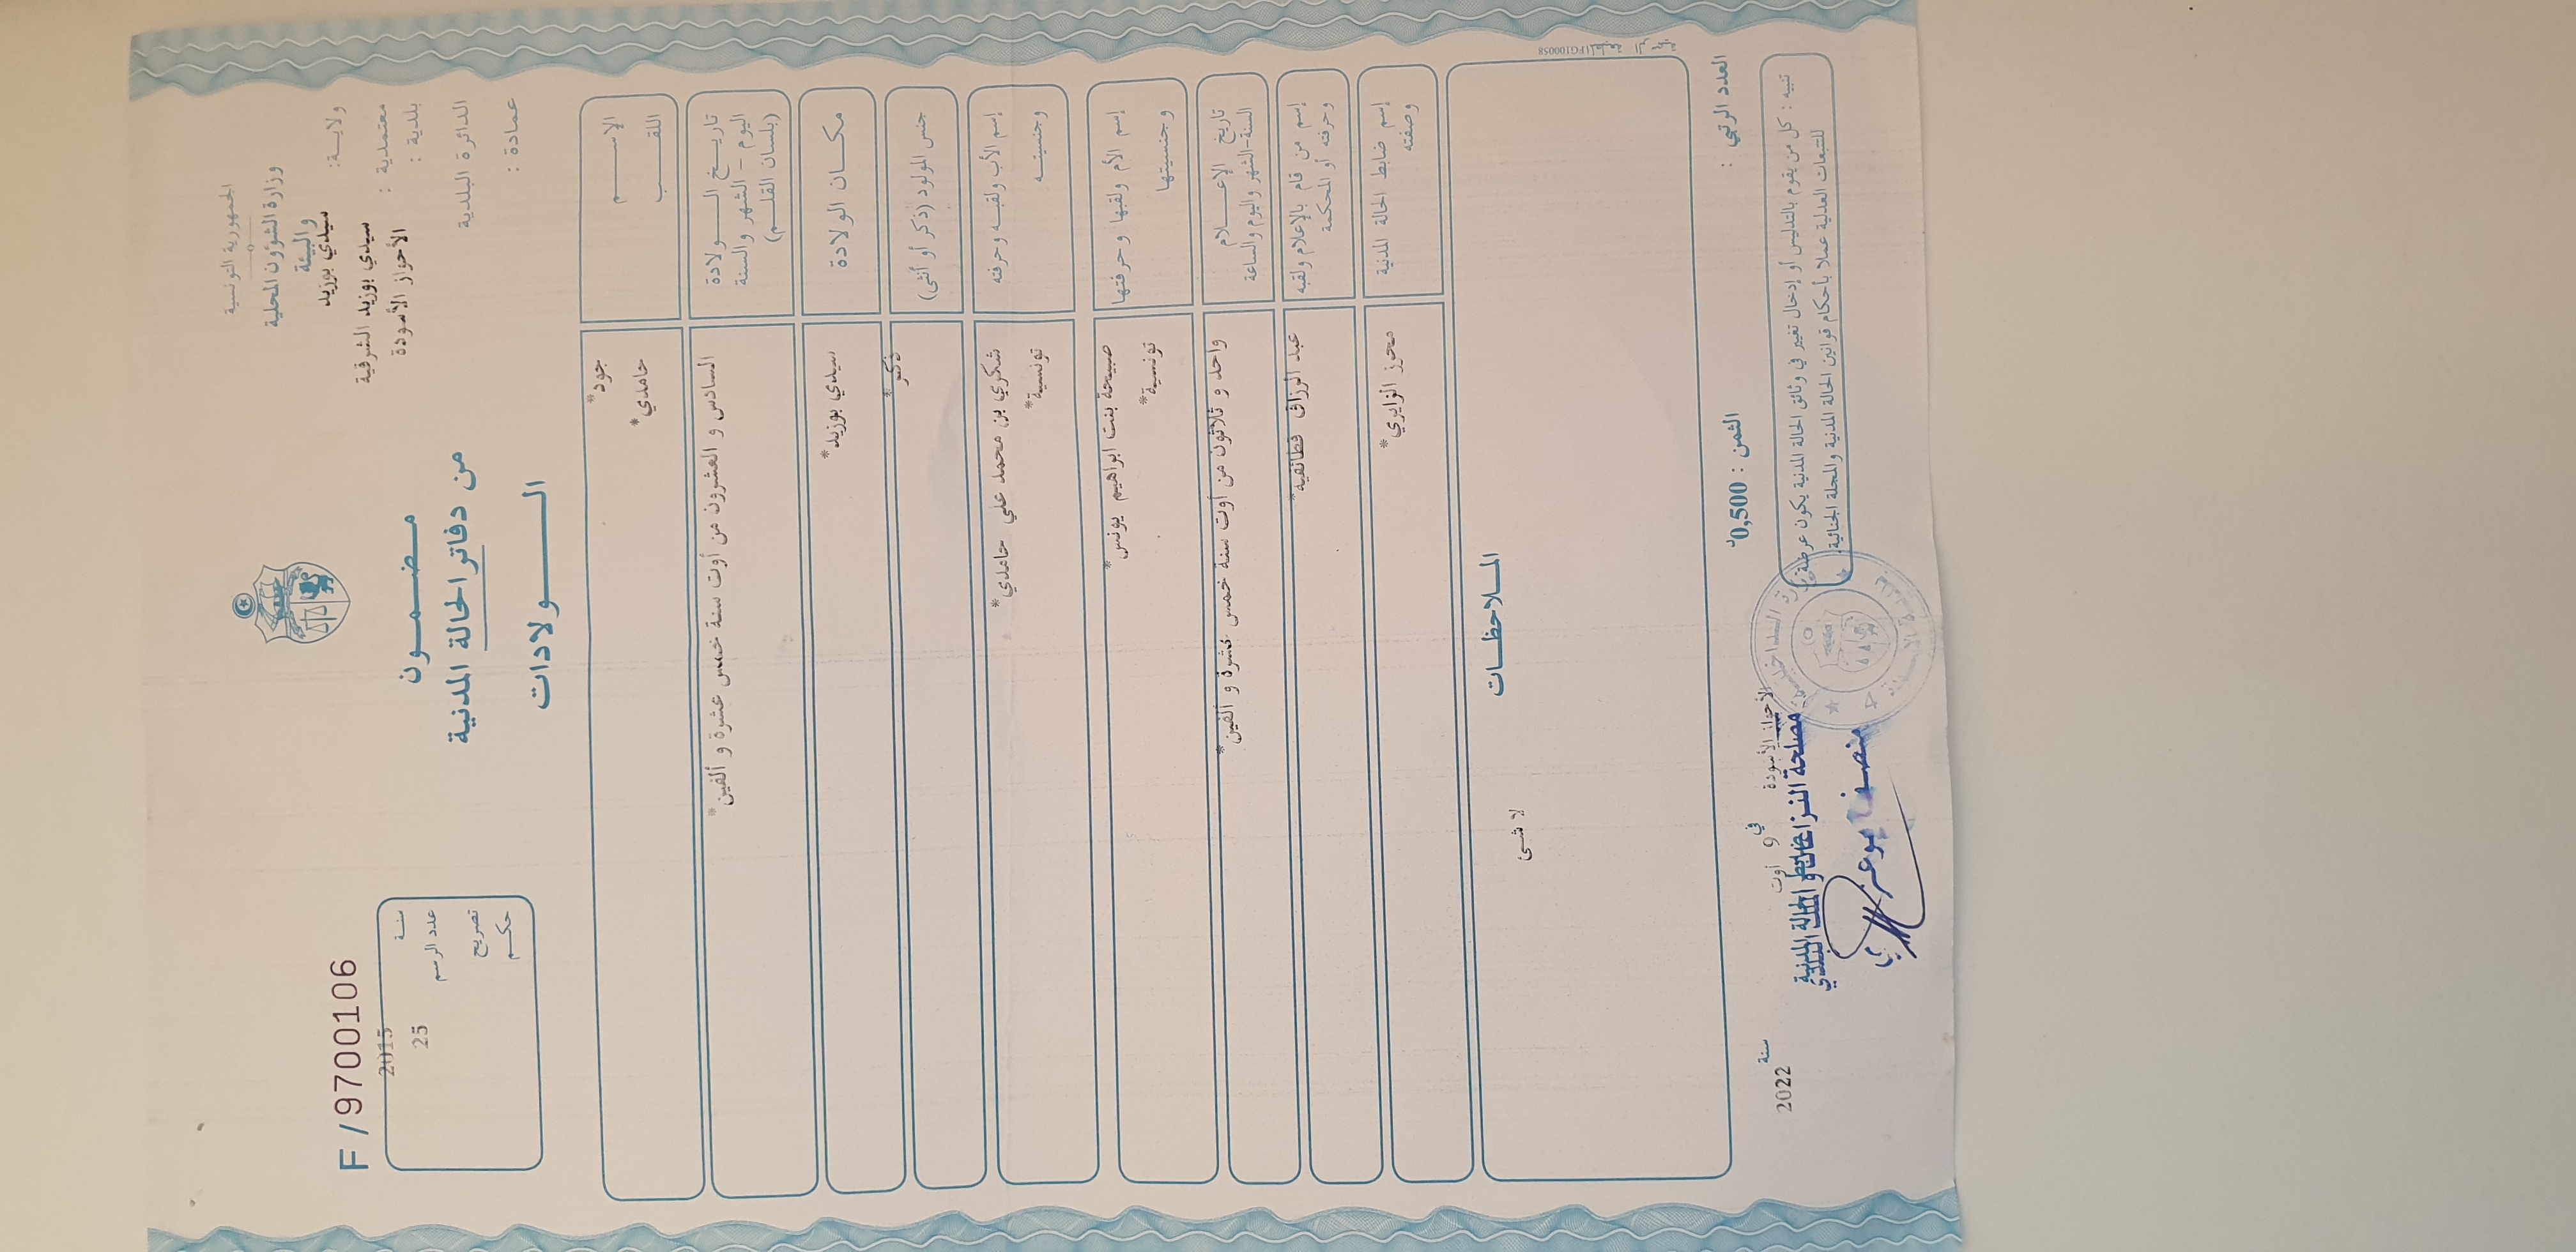 الجمهورية التونسية
وزارة الشؤون المحلية
والبيئة
ولايـة: سيدي بوزيد
معتمدية : سيدي بوزيد الشرقية
بلدية : الأحواز الأسودة
الدائرة البلدية
عمادة :
مـضـمـون
من دفاتر الحالة المدنية
الـولادات
F / 9700106
سنـة 2015
عدد الرسم 25
تصريح
حكـم
الإسـم جود*
اللقـب حامدي*
تاريـخ الـولادة السادس و العشرون من أوت سنة خمس عشرة و ألفين*
(اليوم - الشهر والسنة
بلسان القلـم)
مكـان الولادة سيدي بوزيد*
جنس المولود (ذكر أو أنثى) ذكر*
إسم الأب ولقبـه وحرفته شكري بن محمد علي حامدي*
وجنسيتـه تونسية*
إسم الأم ولقبها وحرفتها صبيحة بنت ابراهيم يونس*
وجنسيتها تونسية*
تاريخ الإعـلام واحد و ثلاثون من أوت سنة خمس عشرة و ألفين*
السنة-الشهر واليوم والساعة
إسم من قام بالإعلام ولقبه عبد الرزاق قطائفية*
وحرفته أو المحكمة
إسم ضابط الحالة المدنية محرز الزايري*
وصفته
المـلاحظـات
لا شئ
العدد الرتبي :
الثمن : 0,500د
تنبيه : كل من يقوم بالتدليس أو إدخال تغيير في وثائق الحالة المدنية يكون عرضة
للتتبعات العدلية عملا بأحكام قوانين الحالة المدنية والمجلة الجنائية.
الأحواز الأسودة في 9 أوت سنة 2022
ضابط الحالة المدنية
منصف بوعزي